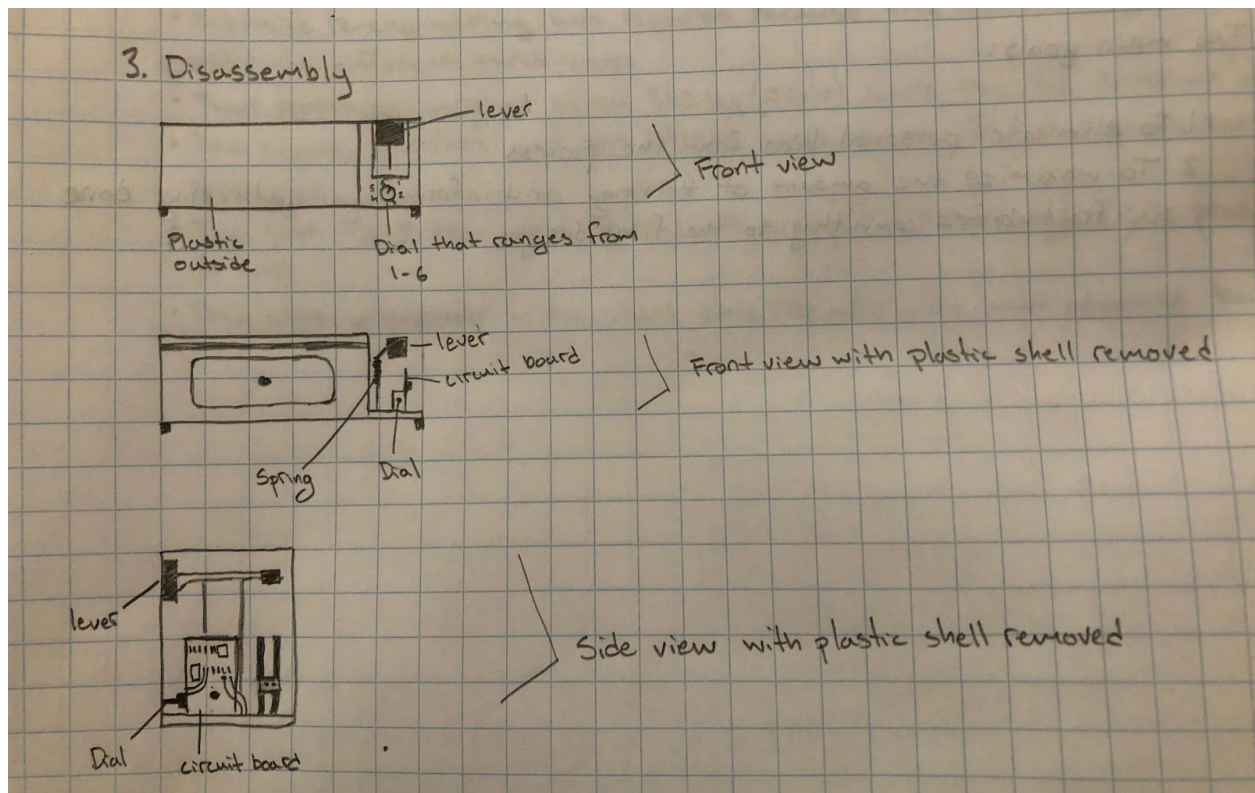 3. Disassembly
lever
Front view
Plastic
outside
Dial that ranges from
1-6
lever
circuit board
Front view with plastic shell removed
Spring
Dial
lever
Side view with plastic shell removed
Dial
circuit board